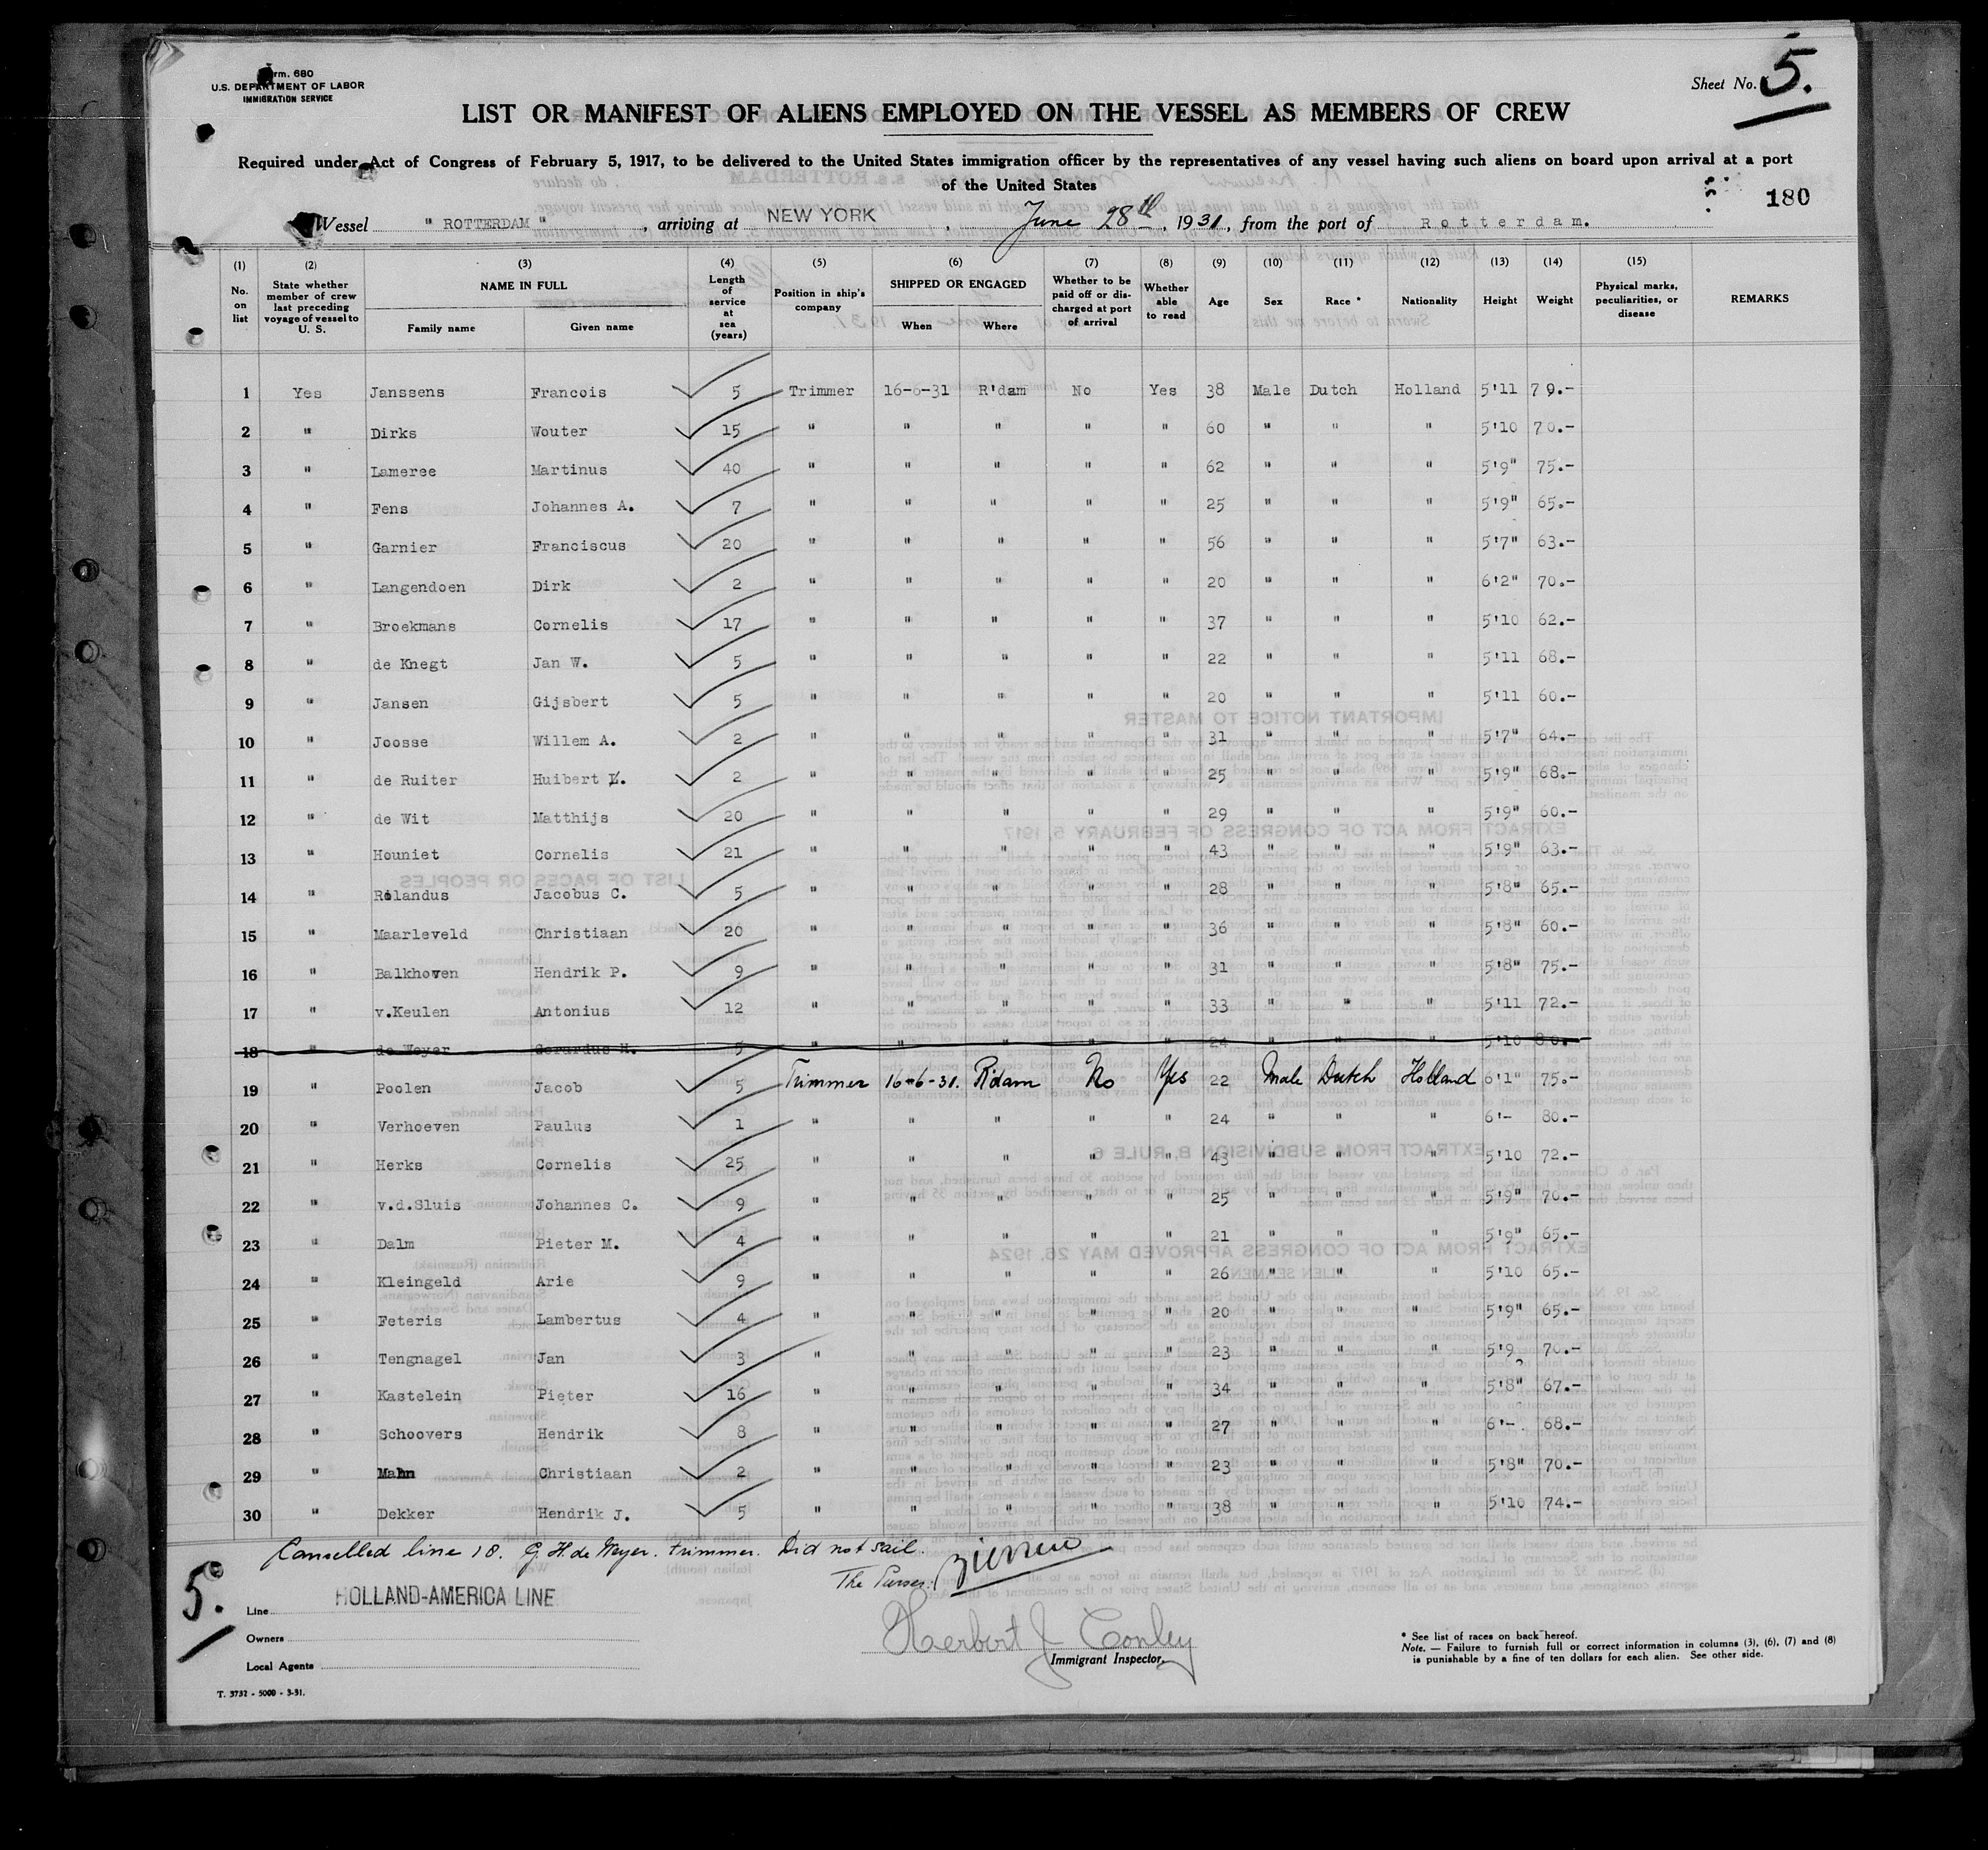 Form. 680
U.S. DEPARTMENT OF LABOR
IMMIGRATION SERVICE
Sheet No. 5.
LIST OR MANIFEST OF ALIENS EMPLOYED ON THE VESSEL AS MEMBERS OF CREW
Required under Act of Congress of February 5, 1917, to be delivered to the United States immigration officer by the representatives of any vessel having such aliens on board upon arrival at a port
of the United States
180
Vessel " ROTTERDAM ", arriving at NEW YORK, June 28th, 1931, from the port of Rotterdam.
(1) No. on list (2) State whether member of crew last preceding voyage of vessel to U. S. (3) NAME IN FULL Family name Given name (4) Length of service at sea (years) (5) Position in ship's company (6) SHIPPED OR ENGAGED When Where (7) Whether to be paid off or discharged at port of arrival (8) Whether able to read (9) Age (10) Sex (11) Race * (12) Nationality (13) Height (14) Weight (15) Physical marks, peculiarities, or disease REMARKS
1 Yes Janssens Francois 5 Trimmer 16-6-31 R'dam No Yes 38 Male Dutch Holland 5'11 79.-
2 " Dirks Wouter 15 " " " " " 60 " " " 5'10 70.-
3 " Lameree Martinus 40 " " " " " 62 " " " 5'9" 75.-
4 " Fens Johannes A. 7 " " " " " 25 " " " 5'9" 65.-
5 " Garnier Franciscus 20 " " " " " 56 " " " 5'7" 63.-
6 " Langendoen Dirk 2 " " " " " 20 " " " 6'2" 70.-
7 " Broekmans Cornelis 17 " " " " " 37 " " " 5'10 62.-
8 " de Knegt Jan W. 5 " " " " " 22 " " " 5'11 68.-
9 " Jansen Gijsbert 5 " " " " " 20 " " " 5'11 60.-
10 " Joosse Willem A. 2 " " " " " 31 " " " 5'7" 64.-
11 " de Ruiter Huibert L. 2 " " " " " 25 " " " 5'9" 68.-
12 " de Wit Matthijs 20 " " " " " 29 " " " 5'9" 60.-
13 " Houniet Cornelis 21 " " " " " 43 " " " 5'9" 63.-
14 " Rolandus Jacobus C. 5 " " " " " 28 " " " 5'8" 65.-
15 " Maarleveld Christiaan 20 " " " " " 36 " " " 5'8" 60.-
16 " Balkhoven Hendrik P. 9 " " " " " 31 " " " 5'8" 75.-
17 " v.Keulen Antonius 12 " " " " " 33 " " " 5'11 72.-
18 " de Weyer Gerardus H. 5 " " " " " 24 " " " 5'10 80.-
19 " Poolen Jacob 5 Trimmer 16-6-31. R'dam No Yes 22 Male Dutch Holland 6'1" 75.-
20 " Verhoeven Paulus 1 " " " " " 24 " " " 6'- 80.-
21 " Herks Cornelis 25 " " " " " 43 " " " 5'10 72.-
22 " v.d.Sluis Johannes C. 9 " " " " " 25 " " " 5'9" 70.-
23 " Dalm Pieter M. 4 " " " " " 21 " " " 5'9" 65.-
24 " Kleingeld Arie 9 " " " " " 26 " " " 5'10 65.-
25 " Feteris Lambertus 4 " " " " " 20 " " " 5'9" 65.-
26 " Tengnagel Jan 3 " " " " " 23 " " " 5'9 70.-
27 " Kastelein Pieter 16 " " " " " 34 " " " 5'8" 67.-
28 " Schoovers Hendrik 8 " " " " " 27 " " " 6'- 68.-
29 " Mahn Christiaan 2 " " " " " 23 " " " 5'8" 70.-
30 " Dekker Hendrik J. 5 " " " " " 38 " " " 5'10 74.-
Cancelled line 18. G. H. de Weyer. trimmer. Did not sail.
The Purser.
5.
Line HOLLAND-AMERICA LINE
Owners
Local Agents
Herbert J Conley
Immigrant Inspector.
* See list of races on back hereof.
Note. — Failure to furnish full or correct information in columns (3), (6), (7) and (8)
is punishable by a fine of ten dollars for each alien. See other side.
T. 3732 - 5000 - 3-31.